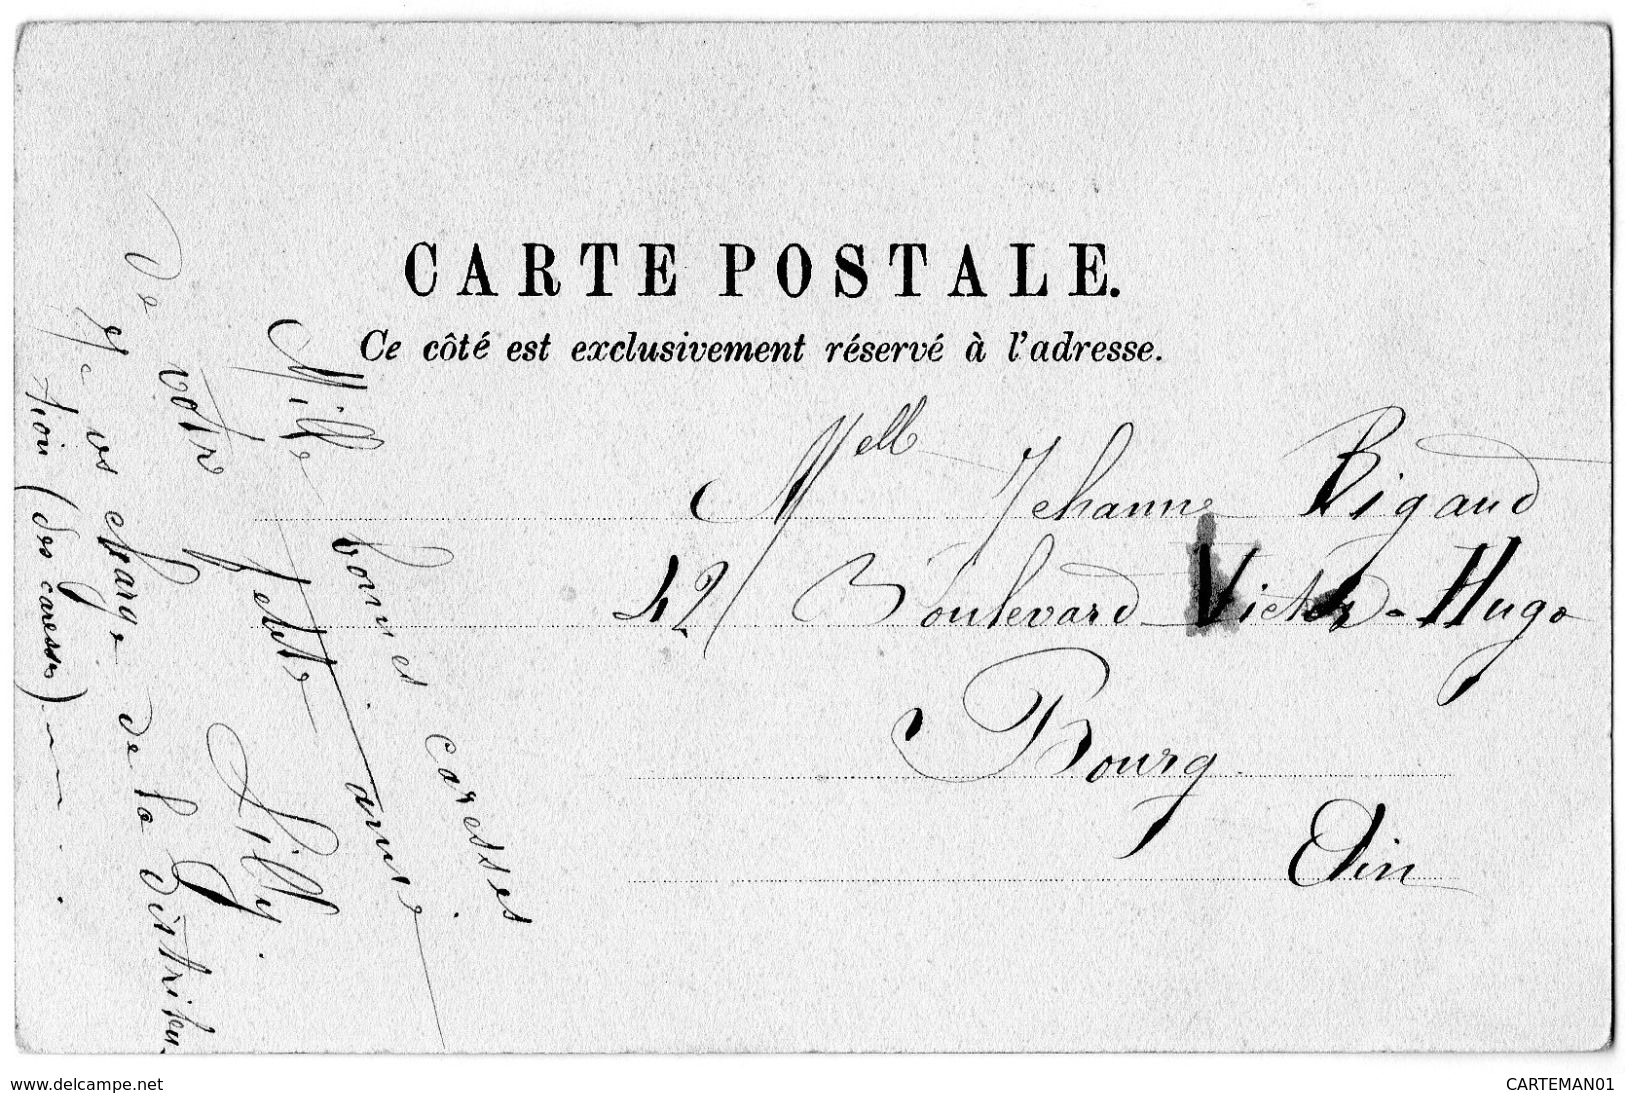 CARTE POSTALE.
Ce côté est exclusivement réservé à l'adresse.
Melle Jehanne Rigaud
42/ Boulevard Victor-Hugo
Bourg
Ain
Mille bonnes caresses
De votre petite amie
Lilly.
Je vs charge de la distribu
tion (des caresses)
delcampe.net
CARTEMAN01